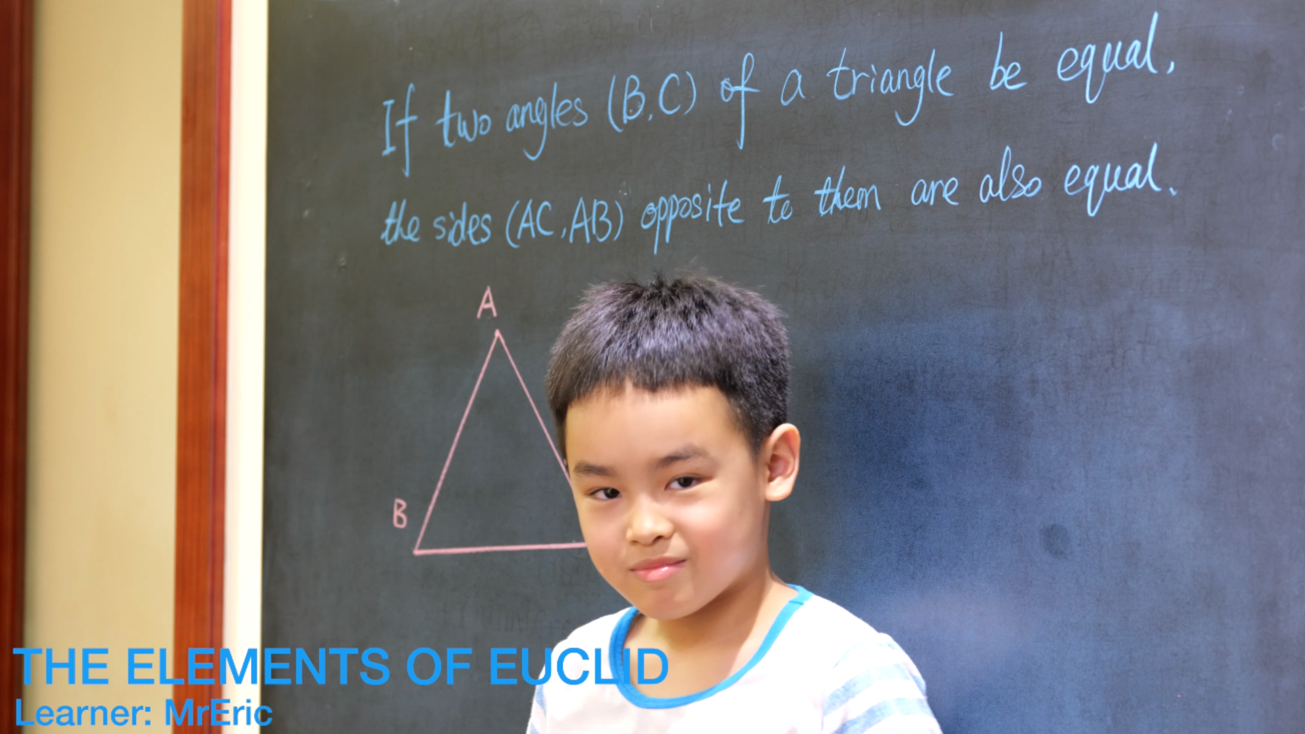 If two angles (B,C) of a triangle be equal,
the sides (AC,AB) opposite to them are also equal.
A
B
THE ELEMENTS OF EUCLID
Learner: MrEric